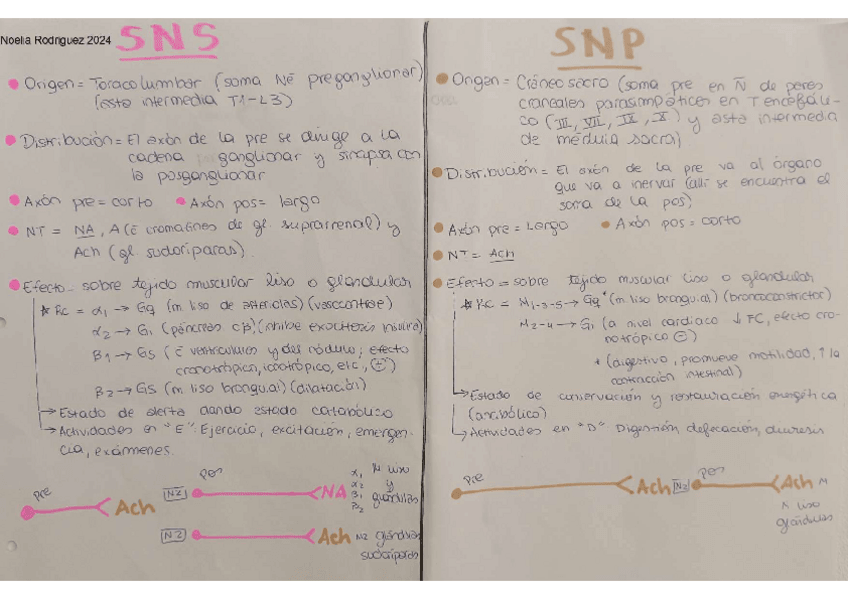 Noelia Rodriguez 2024
SNS
Origen = Toracolumbar (soma NE preganglionar)
(asta intermedia T1-L3)
Distribución = El axón de la pre se dirige a la
cadena ganglionar y sinapsa con
la posganglionar
Axón pre = corto Axón pos = largo
NT = NA, A (C cromafines de gl. suprarrenal) y
Ach (gl. sudoríparas).
Efecto sobre tejido muscular liso o glandular
* Rc = α1 → Gq (m. liso de arteriolas) (vasocontricc)
α2 → Gi (páncreas cβ) (inhibe exocitosis insulina)
β1 → Gs (C ventriculares y del nódulo; efecto
cronotrópico, inotrópico, etc, +)
β2 → Gs (m. liso bronquial) (dilatación)
→ Estado de alerta dando estado catabólico
→ Actividades en "E": Ejercicio, excitación, emergen-
cia, exámenes.
Pre Ach
N2 Pos NA α1 α2 β1 β2 liso y glándulas
N2 Ach glándulas sudoríparas
SNP
Origen = Cráneosacro (soma pre en Ñ de pares
craneales parasimpáticos en T encefáli-
co (III, VII, IX, X) y asta intermedia
de médula sacra)
Distribución = El axón de la pre va al órgano
que va a inervar (allí se encuentra el
soma de la pos)
Axón pre = Largo Axón pos = corto
NT = Ach
Efecto = sobre tejido muscular liso o glandular
* Rc = M1-3-5 → Gq (m. liso bronquial) (broncoconstrictor)
M2-4 → Gi (a nivel cardiaco ↓ FC, efecto cro-
notrópico -)
* (digestivo, promueve motilidad, ↑ la
contracción intestinal)
→ Estado de conservación y restauración energética
(anabólico)
→ Actividades en "D" Digestión, defecación, diuresis
Pre Ach N2 Pos Ach M
liso
glándulas